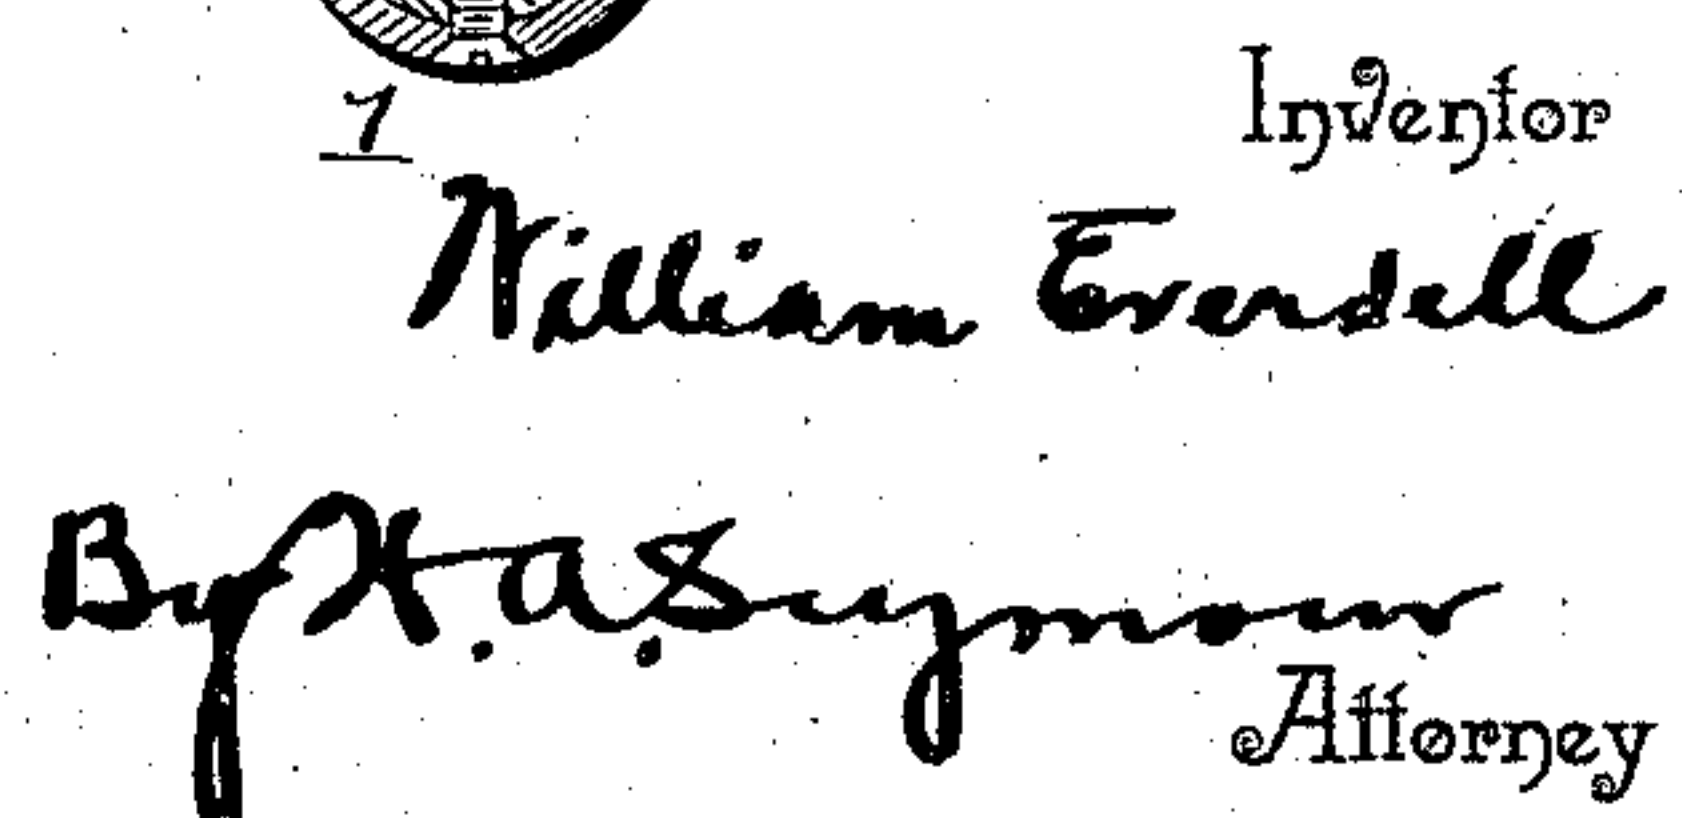 Inventor
7
William Everdell
By H. A. Seymour
Attorney